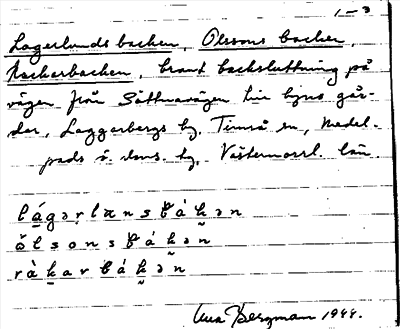 1-3
Lagerlunds backen, Olssons backen,
Rackarbacken, brant backsluttning på
vägen från Sättnavägen till byns går-
dar, Laggarbergs by, Timrå sn, Medel-
pads ö. doms. hg. Västernorrl. län.
lágərlɐnsbákən
ölsonsbákən
ràkarbákən
Bergman 1944.